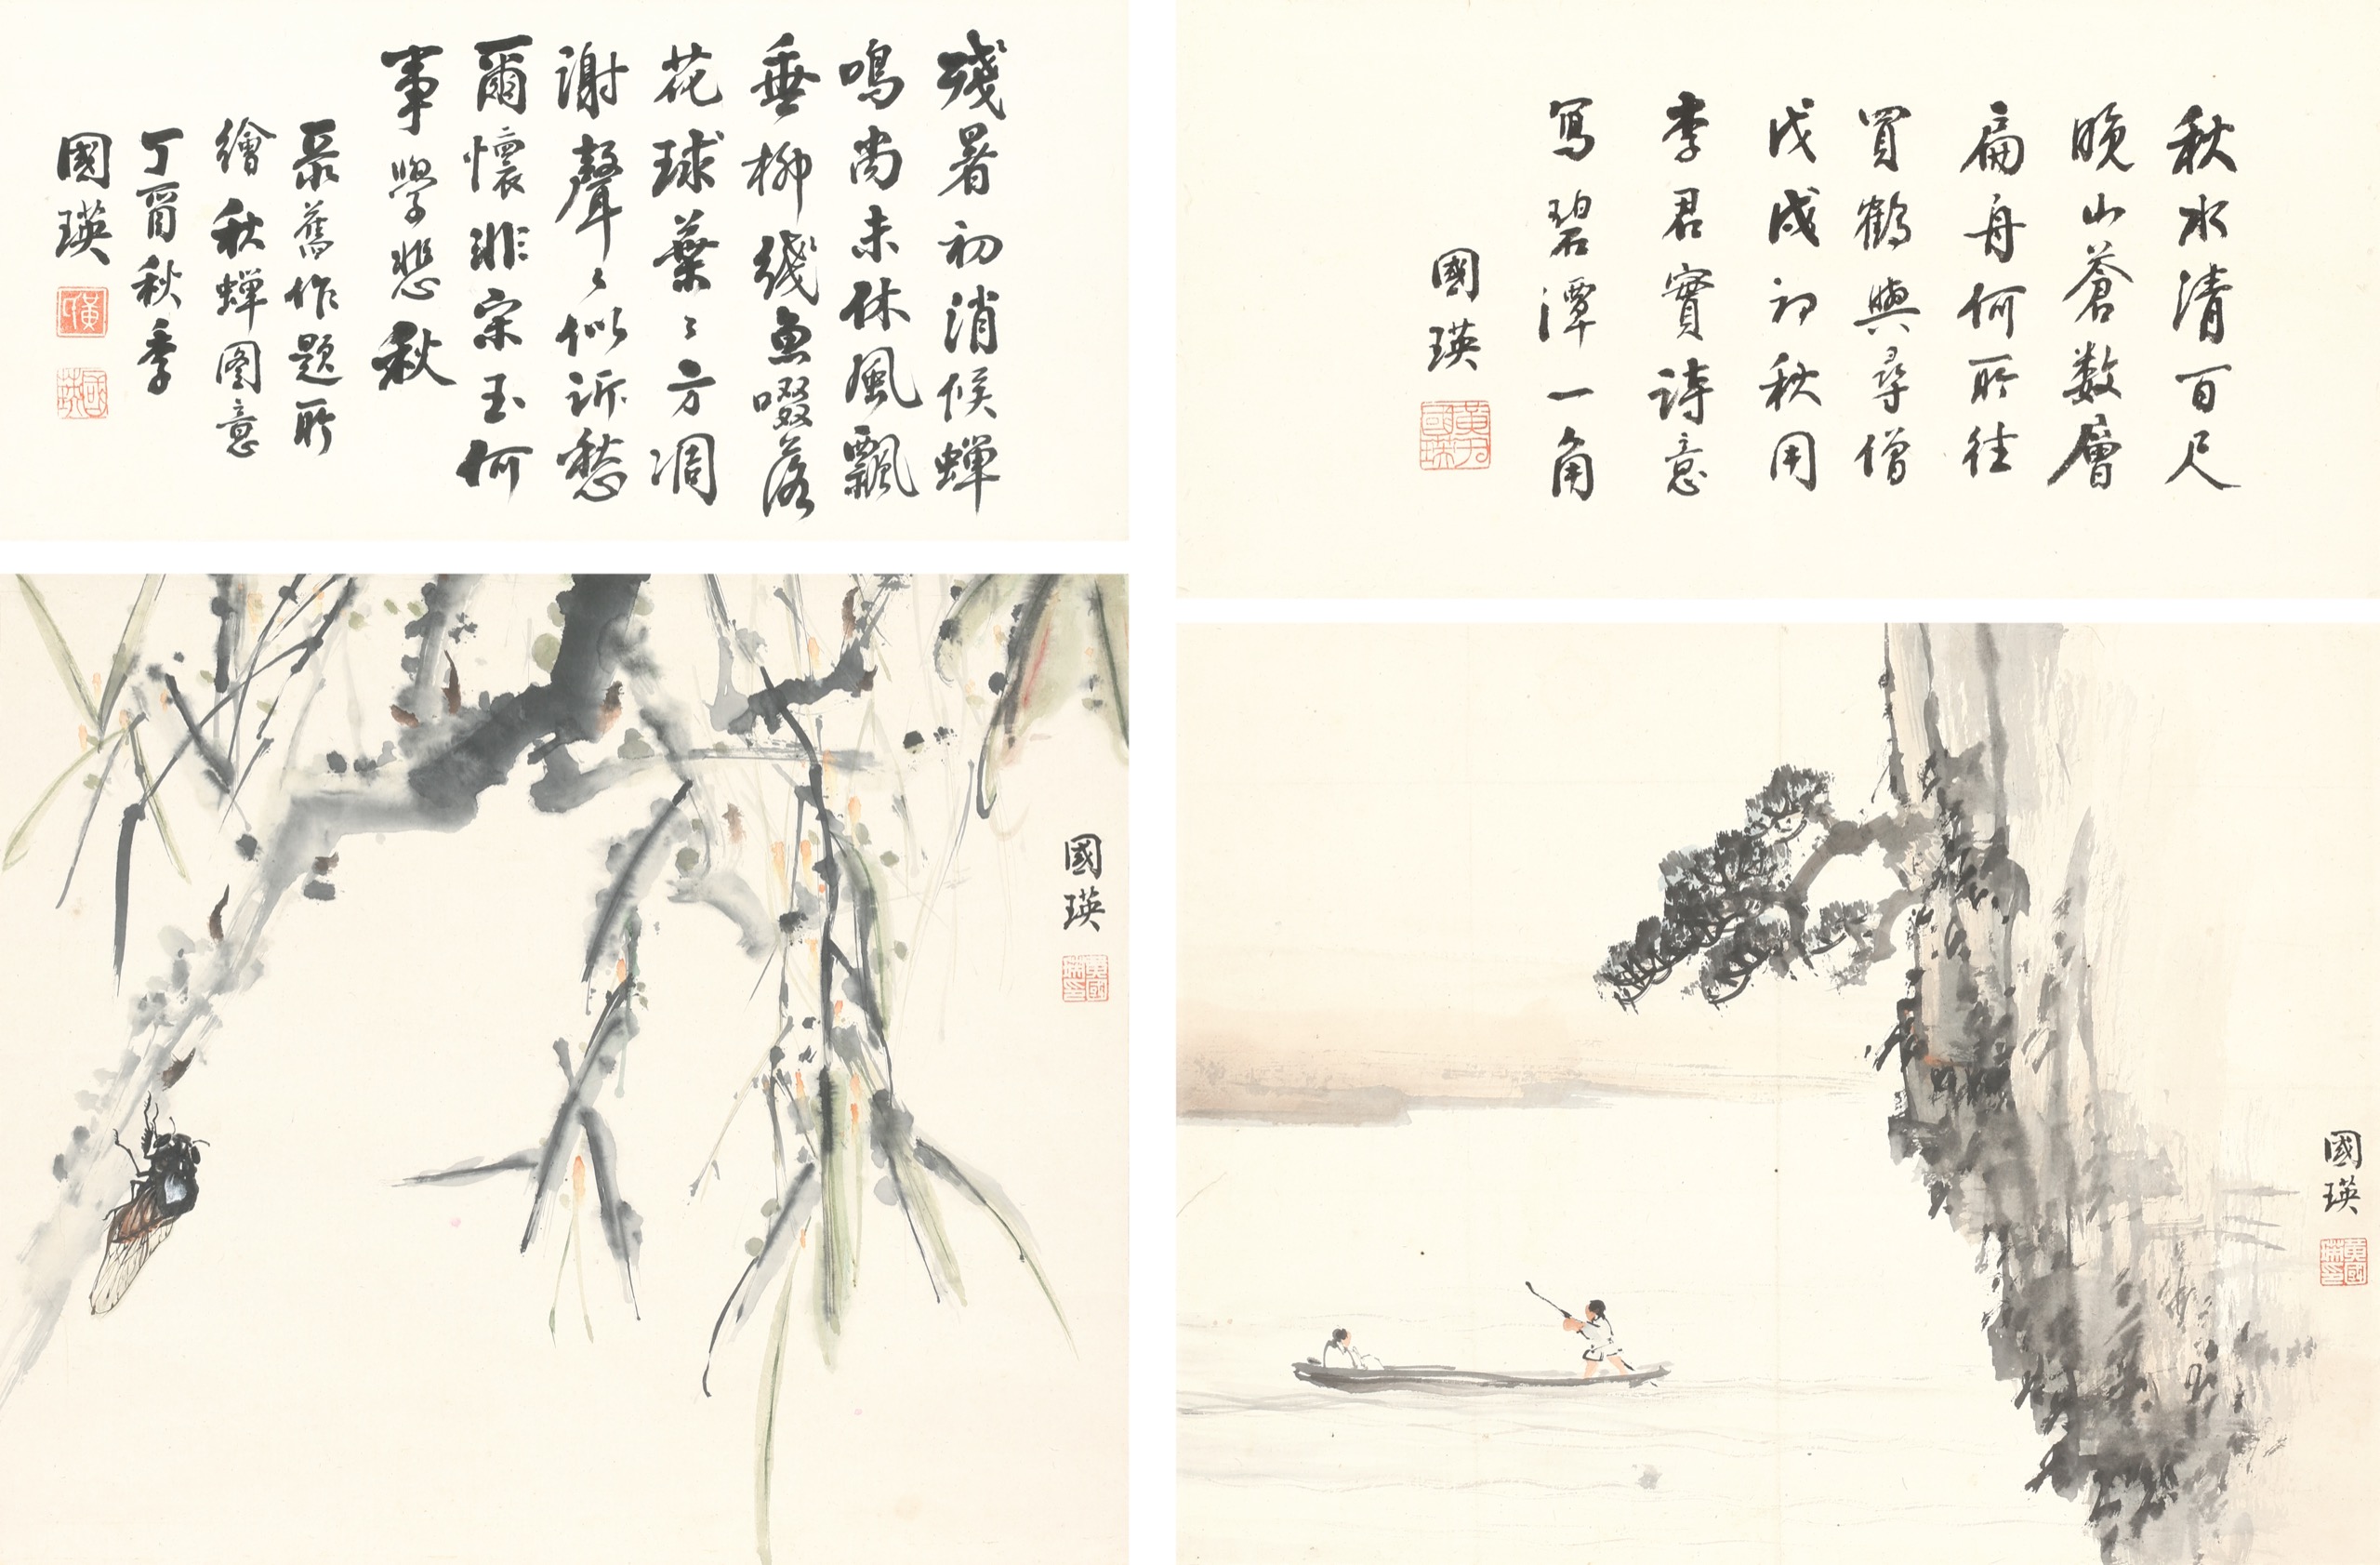 秋水清百尺
晚山蒼数層
扁舟何所往
買鶴與尋僧
戊戌初秋用
李君實詩意
寫碧潭一角
國瑛
黃印國瑛
國瑛
黃國瑛印
殘暑初消候蟬
鳴尚未休風飄
垂柳綫魚啜落
花球葉〻方凋
謝聲〻似訴愁
爾懷非宋玉何
事學悲秋
录舊作題所
繪秋蟬图意
丁酉秋季
國瑛
國瑛
國瑛
黃國瑛印